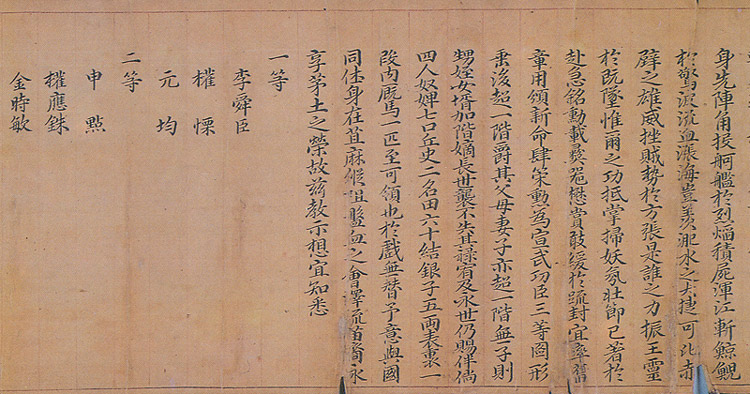 身先陣角投舸艦於烈焰積屍渾江斬鯨鯢
於驚波波血漲海豈羨淝水之大捷可比赤
壁之雄威挫賊勢於方張是誰之力振王靈
於既墜惟爾之功抵掌掃妖氛壯節已著於
赴急銘勳載彝懋賞敢緩於疏封宜率舊
章用頒新命肆策勳為宣武功臣三等圖形
垂後超一階爵其父母妻子亦超一階無子則
甥姪女壻加階嫡長世襲不失其祿宥及永世仍賜伴倘
四人奴婢七口丘史二名田六十結銀子五兩表裏一
段內廐馬一匹至可領也於戲無替予意與國
同休身在苴麻縱阻盤血之會澤流苗裔永
享茅土之榮故茲教示想宜知悉
一等
李舜臣
權慄
元均
二等
申點
權應銖
金時敏